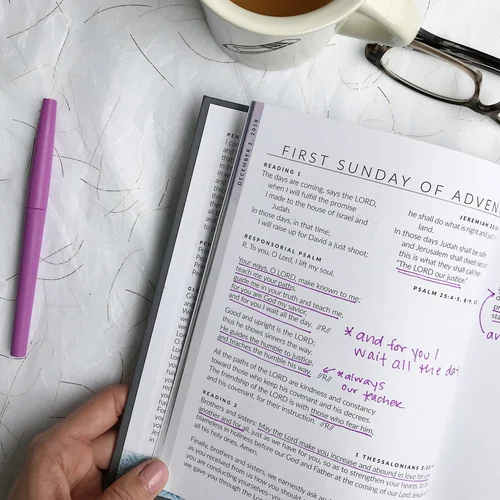 DECEMBER 2, 2018
FIRST SUNDAY OF ADVEN
READING 1
JEREMIAH 33:1
The days are coming, says the LORD,
when I will fulfill the promise
I made to the house of Israel and
Judah.
In those days, in that time,
I will raise up for David a just shoot;
he shall do what is right and just
land.
In those days Judah shall be safe
and Jerusalem shall dwell secure
this is what they shall call her
"The LORD our justice."
RESPONSORIAL PSALM
PSALM 25:4-5, 8-9,
R. To you, O Lord, I lift my soul.
Your ways, O LORD, make known to me;
teach me your paths,
guide me in your truth and teach me,
for you are God my savior,
and for you I wait all day. //R//
Good and upright is the LORD;
thus he shows sinners the way.
He guides the humble to justice,
and teaches the humble his way. //R//
* and for you I
wait all the day
* always
our teacher
All the paths of the LORD are kindness and constancy
toward those who keep his covenant and his decrees.
The friendship of the LORD is with those who fear him,
and his covenant, for their instruction. //R//
READING 2
1 THESSALONIANS 3:12
Brothers and sisters: May the Lord make you increase and abound in love for
another and for all, just as we have for you, so as to strengthen your hearts,
blameless in holiness before our God and Father at the coming of our Lord
all his holy ones. Amen.
Finally, brothers and sisters, we earnestly ask
as you received from us how you should
you are conducting yourselves
we gave you through the